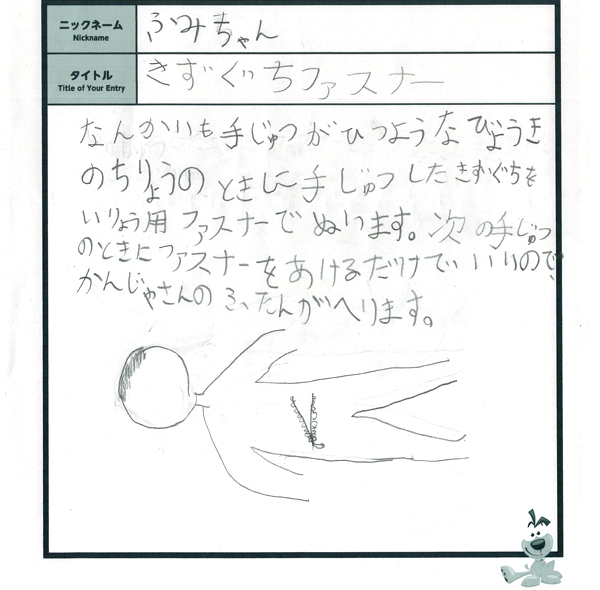 ニックネーム
Nickname
ふみちゃん
タイトル
Title of Your Entry
きずぐちファスナー
なんかいも手じゅつがひつようなびょうき
のちりょうのときに手じゅつしたきずぐちを
いりょう用ファスナーでぬいます。次の手じゅつ
のときにファスナーをあけるだけでいいので、
かんじゃさんのふたんがへります。